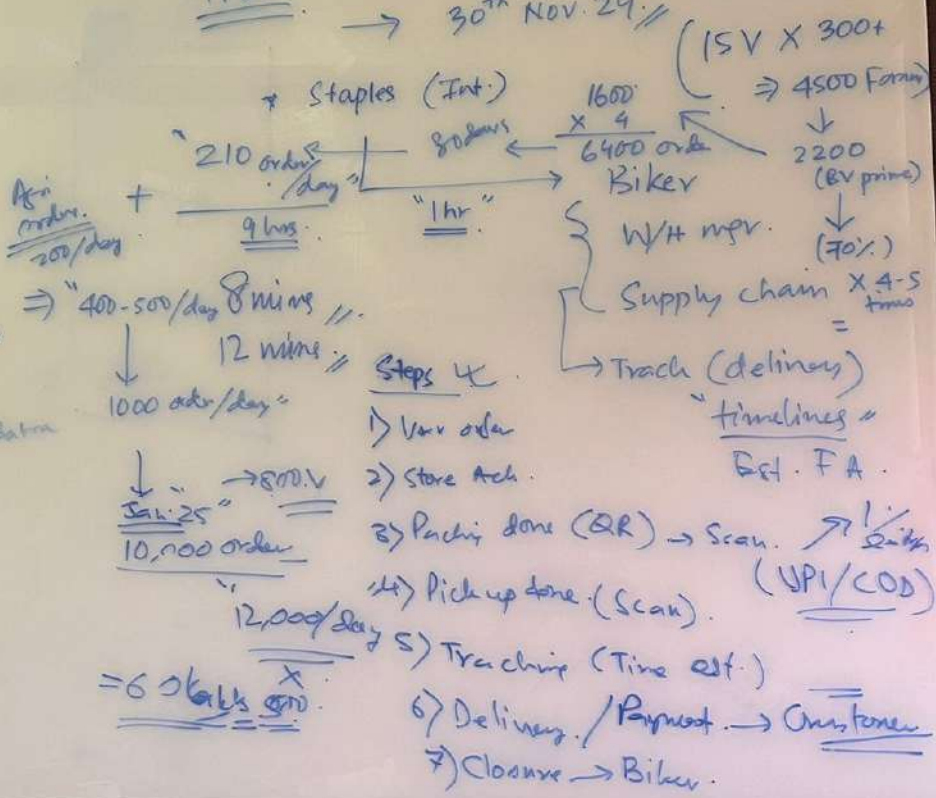 → 30th Nov. 24 //
(15 V X 300+
⇒ 4500 Farmers)
↓
2200
(BV prime)
↓
(70%)
X 4-5 times
=
* Staples (Int.)
1600
X 4
6400 order
← 30 days ←
"210 order/day"
9 hrs.
"1 hr" →
Agri order.
200/day
+
⇒ "400-500/day 8 mins //.
12 mins. //
↓
1000 odr/day"
↓
"Jan. 25" → 800.V
10,000 order
12,000/day
X
= 6
Biker
W/H mgr.
Supply chain
→ Track (delivery)
"timelines"
Est. F A.
Steps
1) order
2) Store Ack.
3) Packing done (QR) → Scan.
(UPI/COD)
4) Pick up done. (Scan).
5) Tracking (Time est.)
6) Delivery. / Payment. → Customer
7) Closure → Biker.